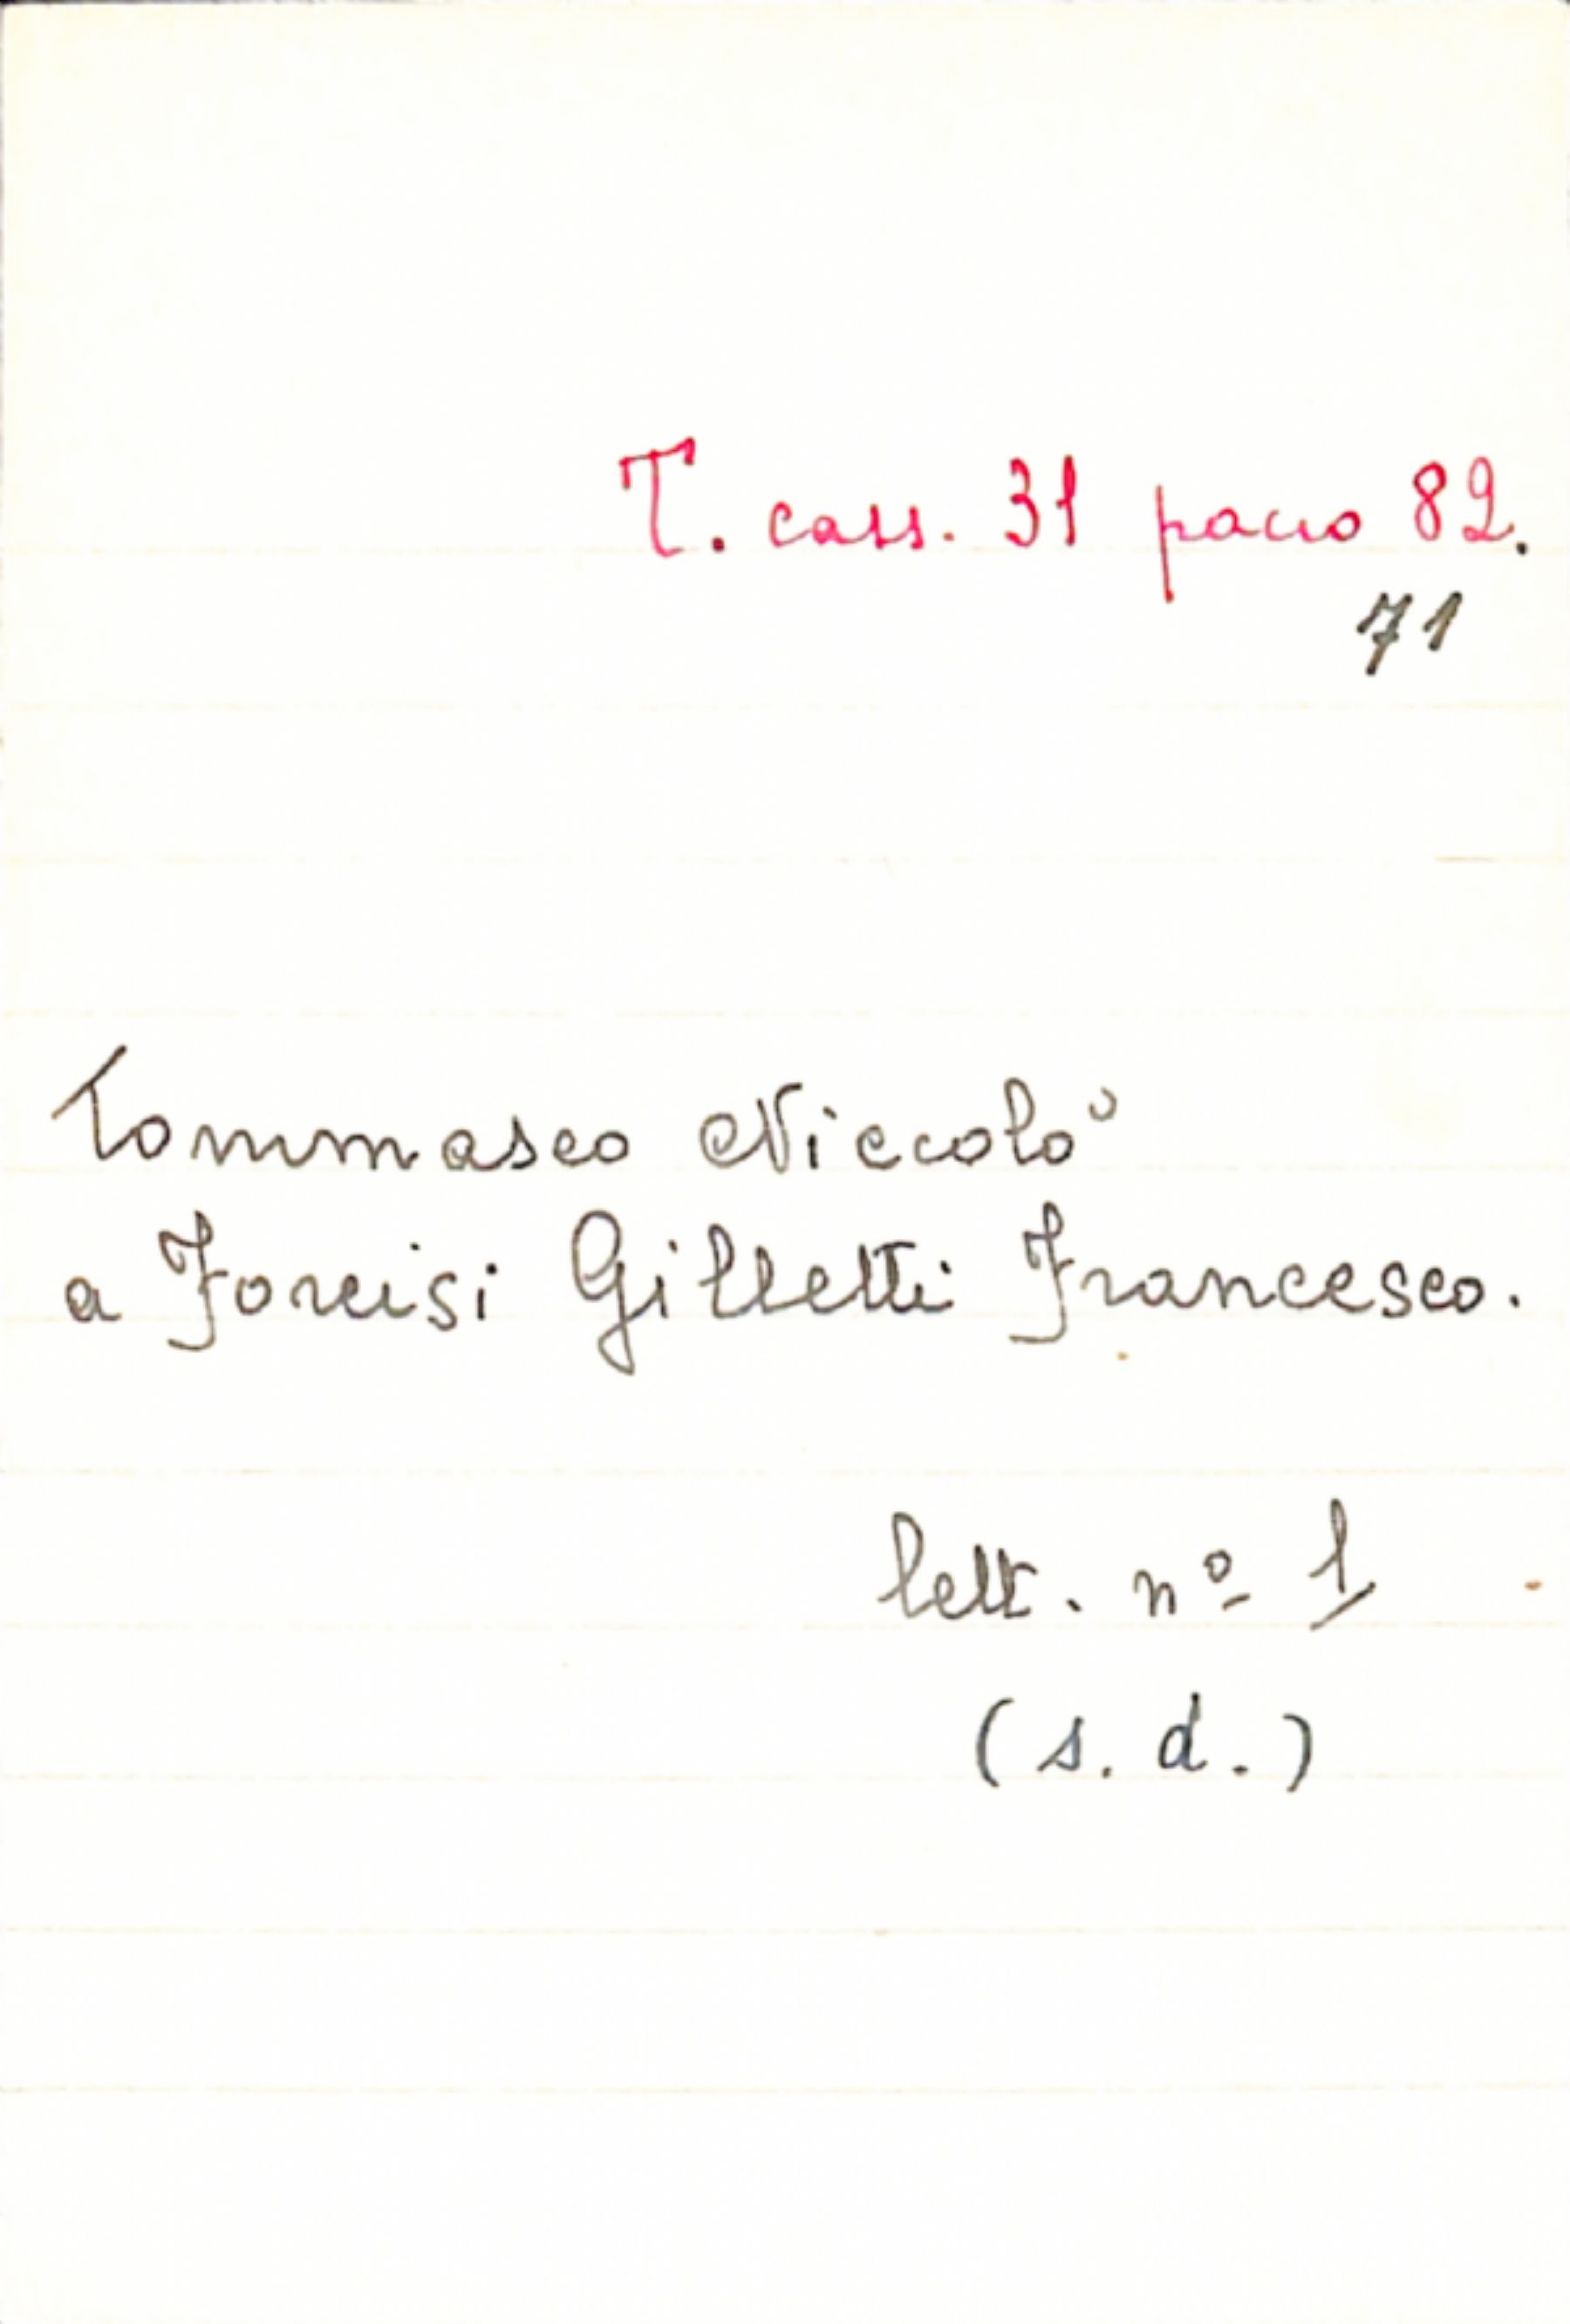 T. cass. 31 pacco 82.
71
Tommaseo Niccolò
a Forcisi Gilletti Francesco.
lett. nº 1
(s. d.)